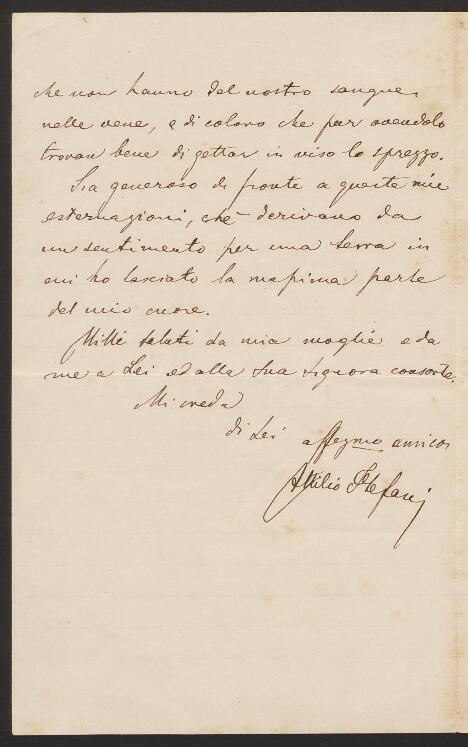 che non hanno del nostro sangue
nelle vene, e di coloro che pur avendolo
trovan bene di gettar in viso lo sprezzo.
Sia generoso di fronte a queste mie
esternazioni, chè derivano da
un sentimento per una terra in
cui ho lasciato la massima parte
del mio cuore.
Mille saluti da mia moglie e da
me a Lei ed alla sua signora consorte.
Mi creda
di Lei affezmo amico
Attilio Stefani